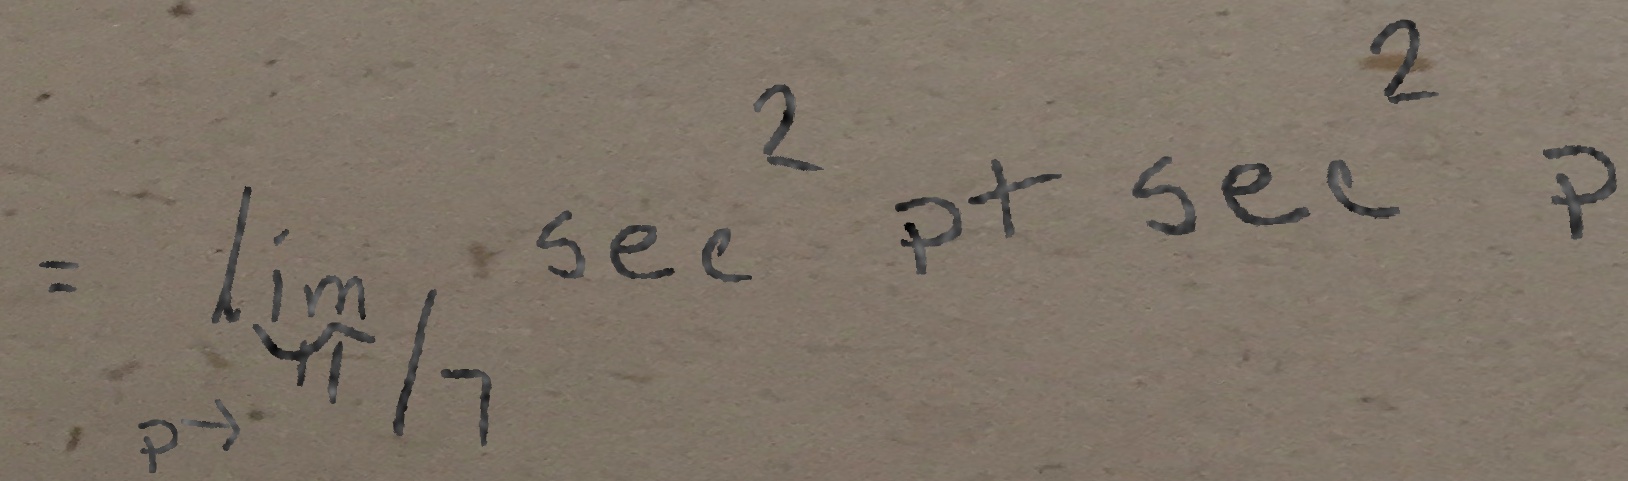 = lim p→π/7 sec² p + sec² p